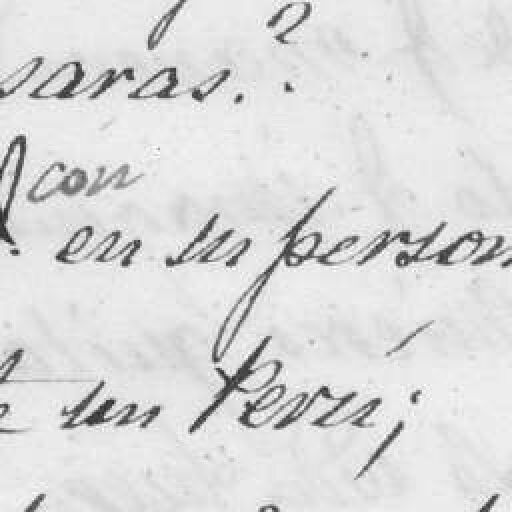 saras.?
con
en su person
un Perú;